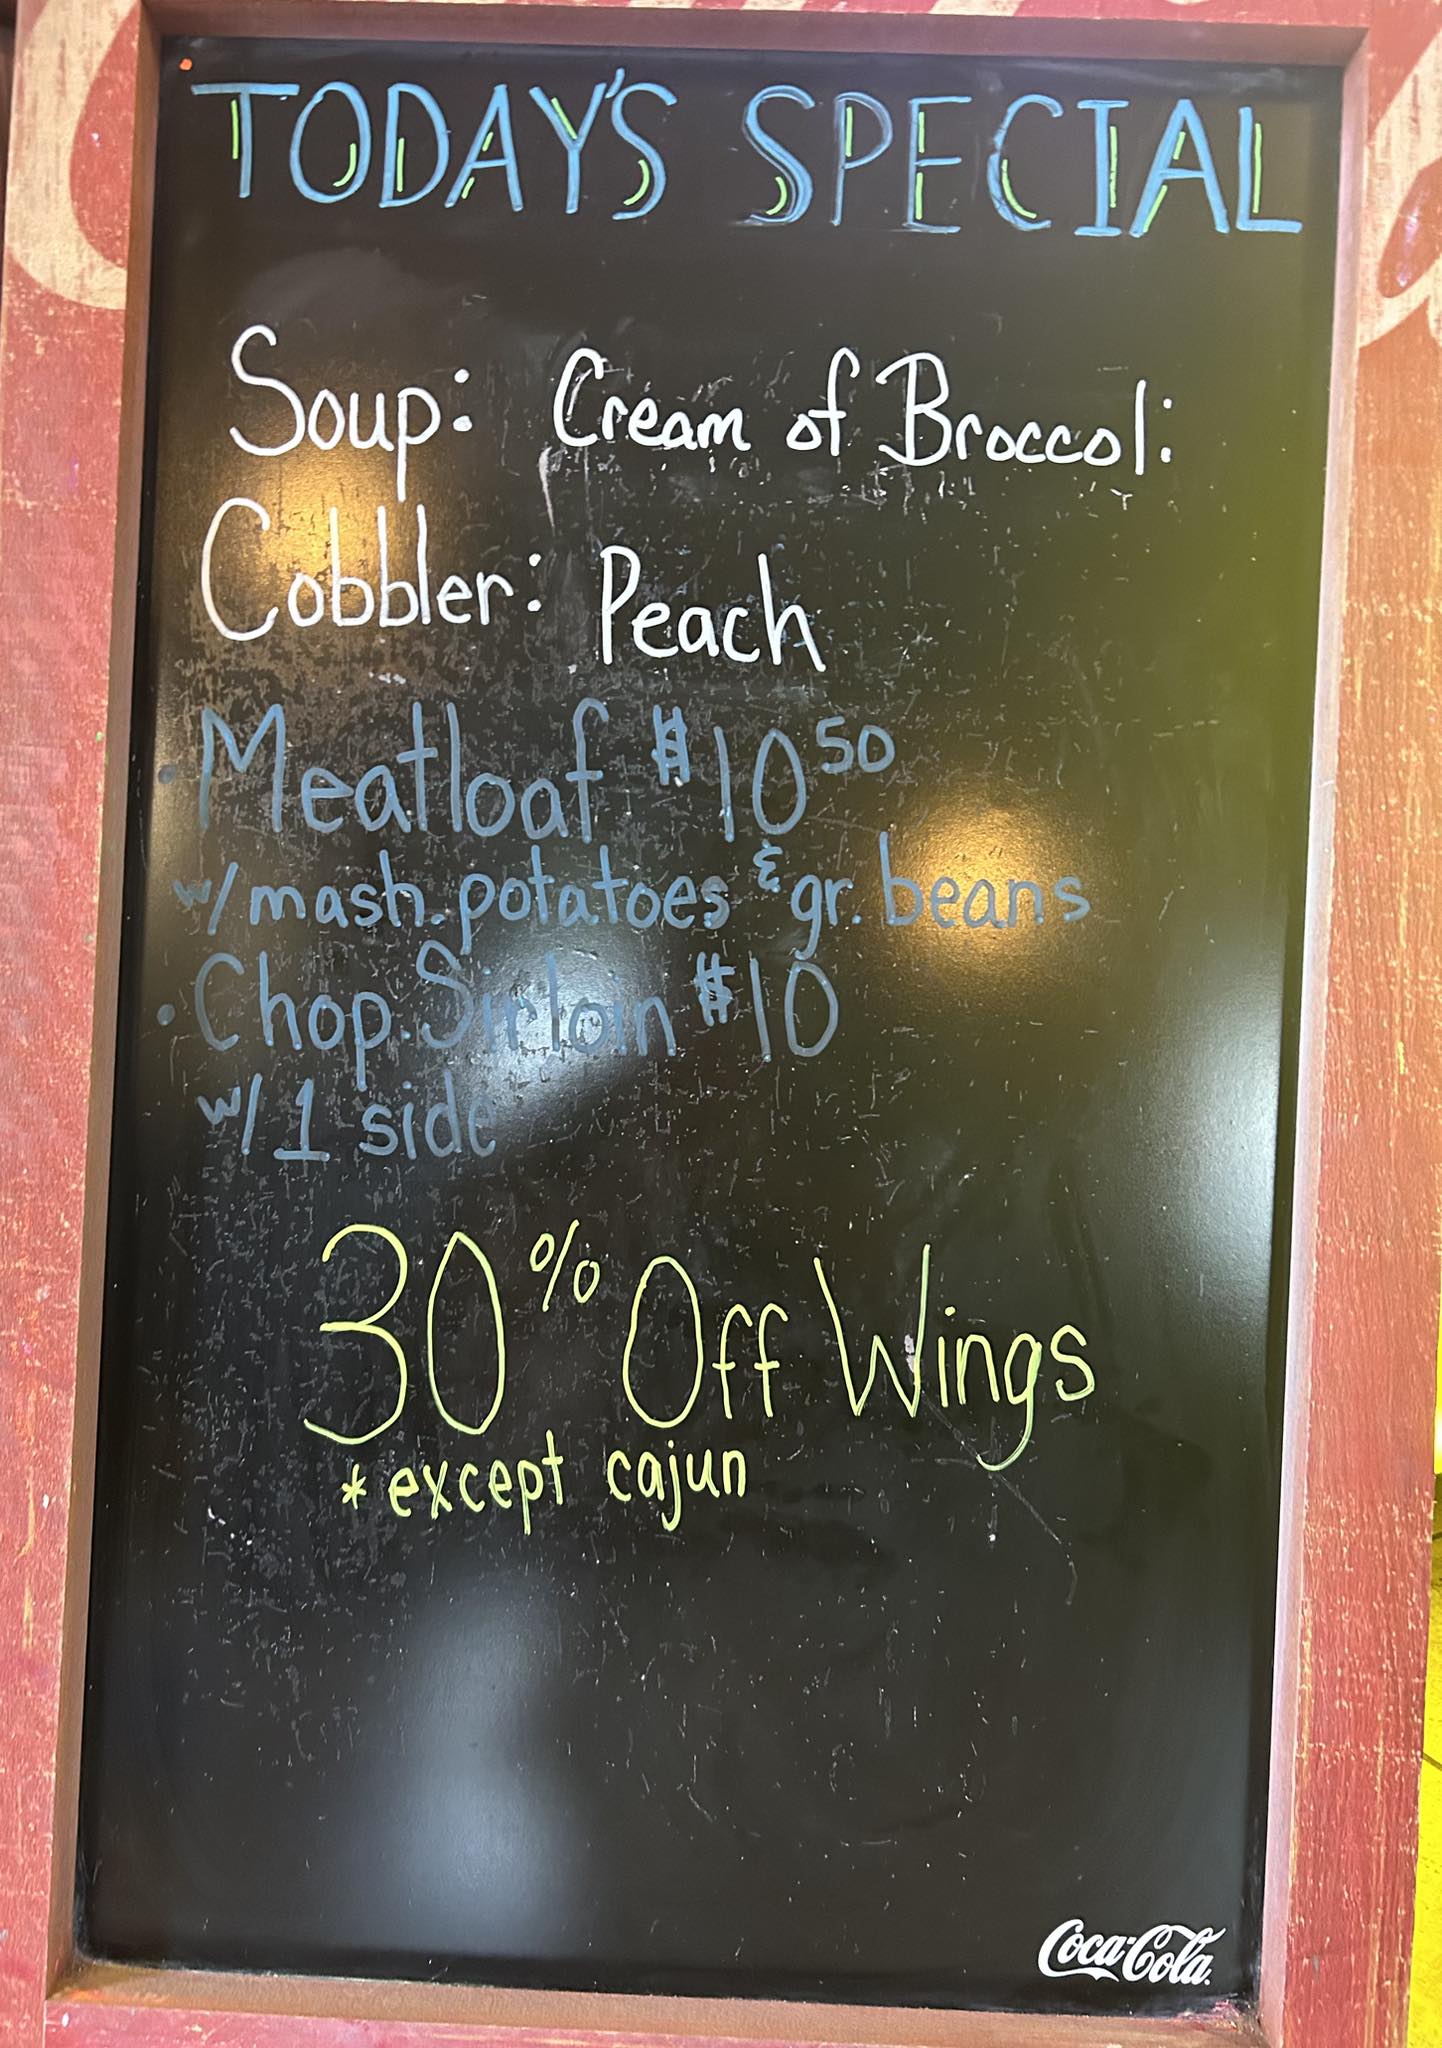 TODAY'S SPECIAL
Soup: Cream of Broccoli
Cobbler: Peach
• Meatloaf $10.50
w/ mash. potatoes & gr. beans
• Chop. Sirloin $10
w/ 1 side
30% Off Wings
* except cajun
Coca-Cola